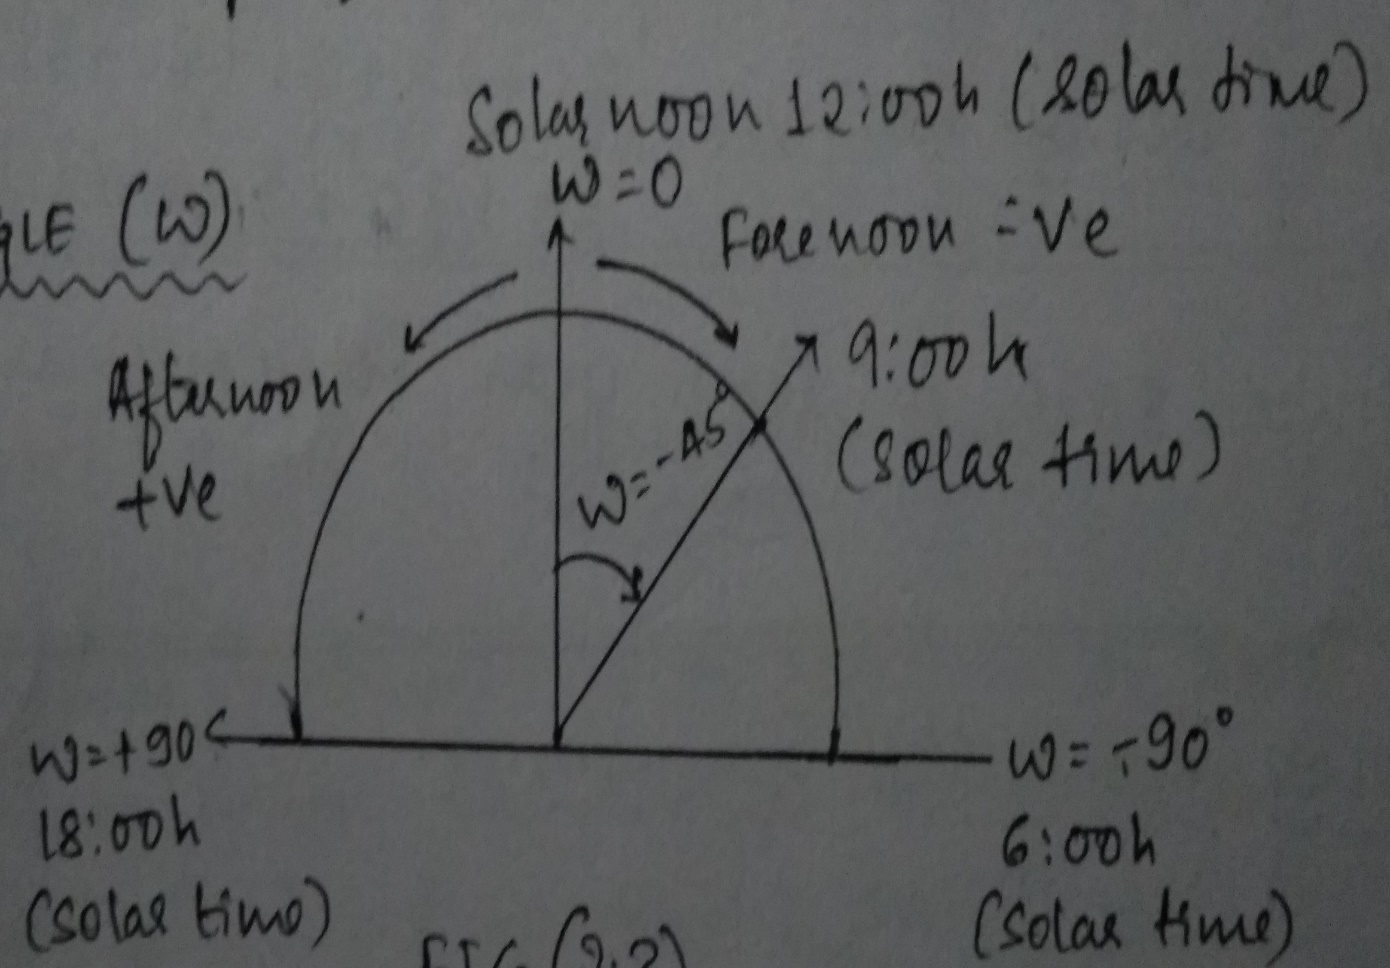 Solar noon 12:00h (Solar time)
W=0
GLE (W)
Forenoon -ve
Afternoon
+ve
9:00h
(Solar time)
W=-45°
W=+90
18:00h
(Solar time)
W=-90°
6:00h
(Solar time)
FIG (2.2)